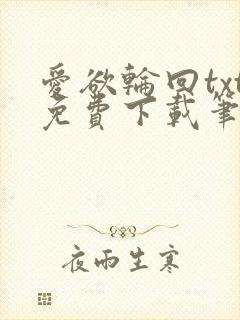 愛欲輪回txt
免費下載筆
夜雨生寒